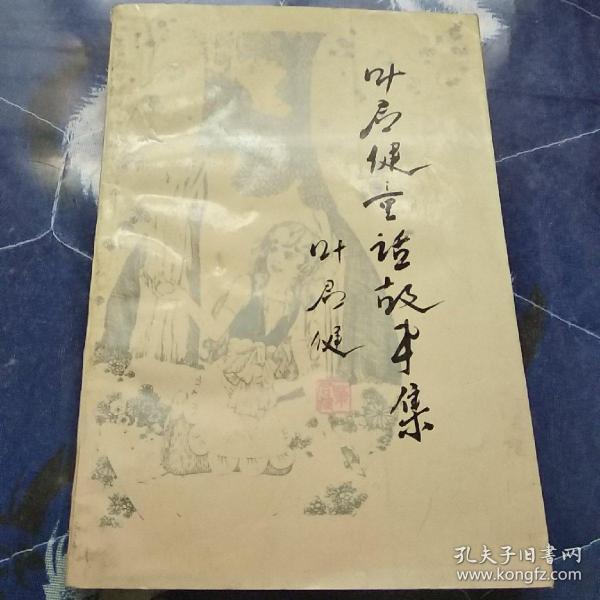 叶君健童话故事集
叶君健
孔夫子旧书网
www.kongfz.com